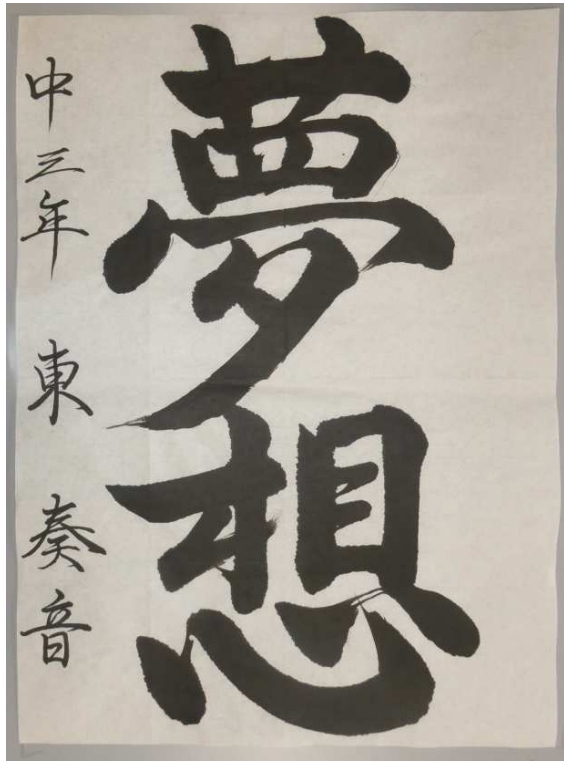 夢想
中三年 東 奏音